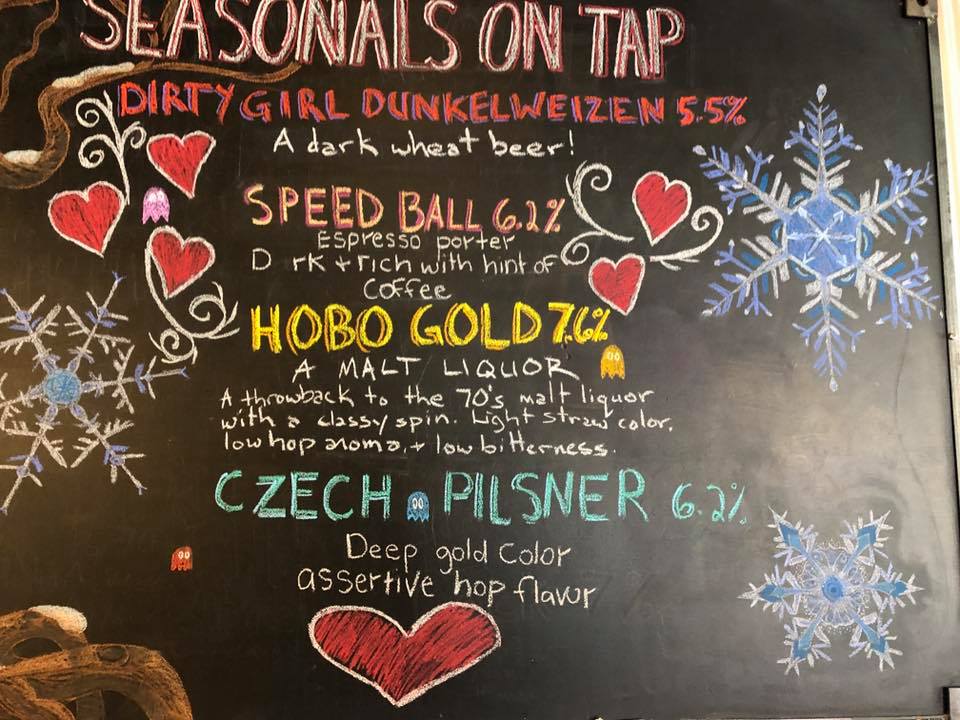 SEASONALS ON TAP
DIRTY GIRL DUNKELWEIZEN 5.5%
A dark wheat beer!
SPEED BALL 6.2%
Espresso porter
D rk + rich with hint of
coffee
HOBO GOLD 7.6%
A MALT LIQUOR
A throwback to the 70's malt liquor
with a classy spin. Light straw color,
low hop aroma, + low bitterness.
CZECH PILSNER 6.2%
Deep gold color
assertive hop flavor